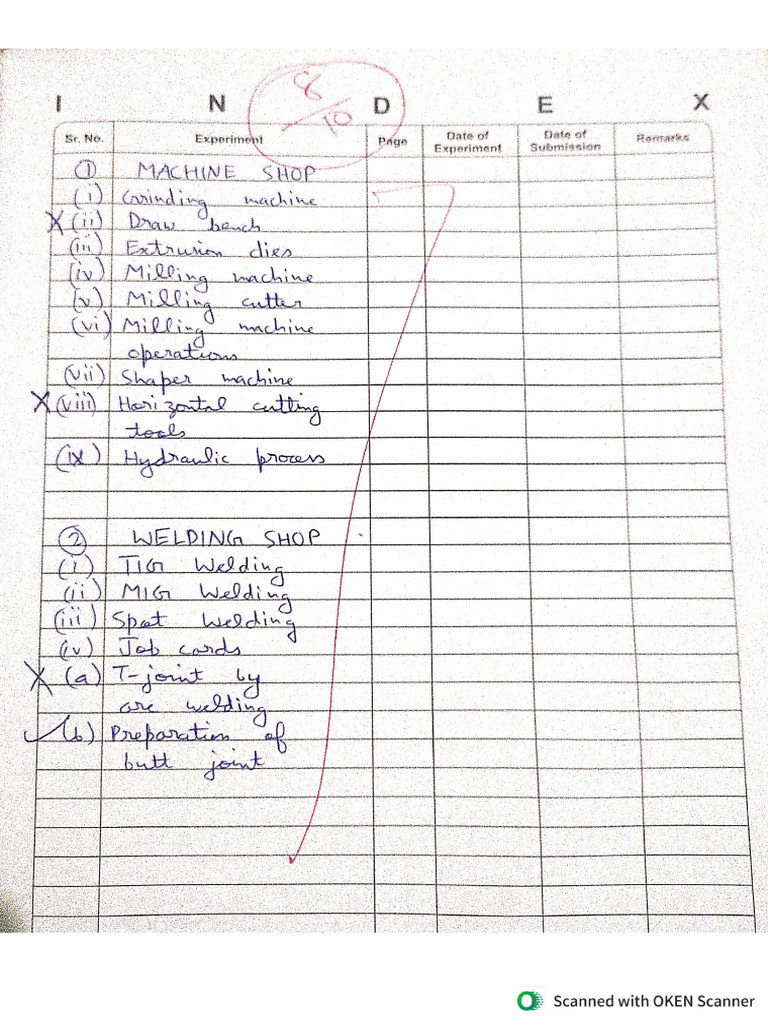 I N D E X
8/10
Sr. No. Experiment Page Date of Experiment Date of Submission Remarks
① MACHINE SHOP
(i) Grinding machine
X (ii) Draw bench
(iii) Extrusion dies
(iv) Milling machine
(v) Milling cutter
(vi) Milling machine
operations
(vii) Shaper machine
X (viii) Horizontal cutting
tools
(ix) Hydraulic process
② WELDING SHOP
(i) TIG Welding
(ii) MIG Welding
(iii) Spot Welding
(iv) Job cards
X (a) T-joint by
arc welding
✓ (b) Preparation of
butt joint
Scanned with OKEN Scanner